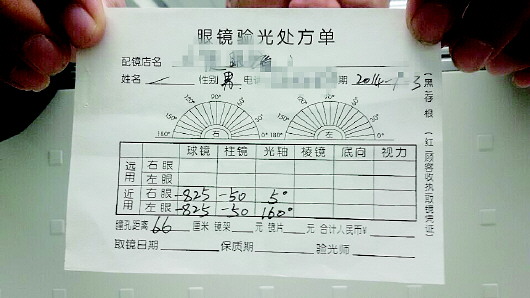 眼镜验光处方单
配镜店名
姓名 性别 男 电 期 2014
180° 150° 120° 90° 右 0° 180° 150° 120° 90° 左 0°
球镜 柱镜 光轴 棱镜 底向 视力
远用 右眼
左眼
近用 右眼 -825 -50 5°
左眼 -825 -50 160°
瞳孔距离 66 厘米 镜架 元 镜片 元 合计人民币¥
取镜日期 保质期 验光师
(黑存根)(红顾客收执取镜凭证)